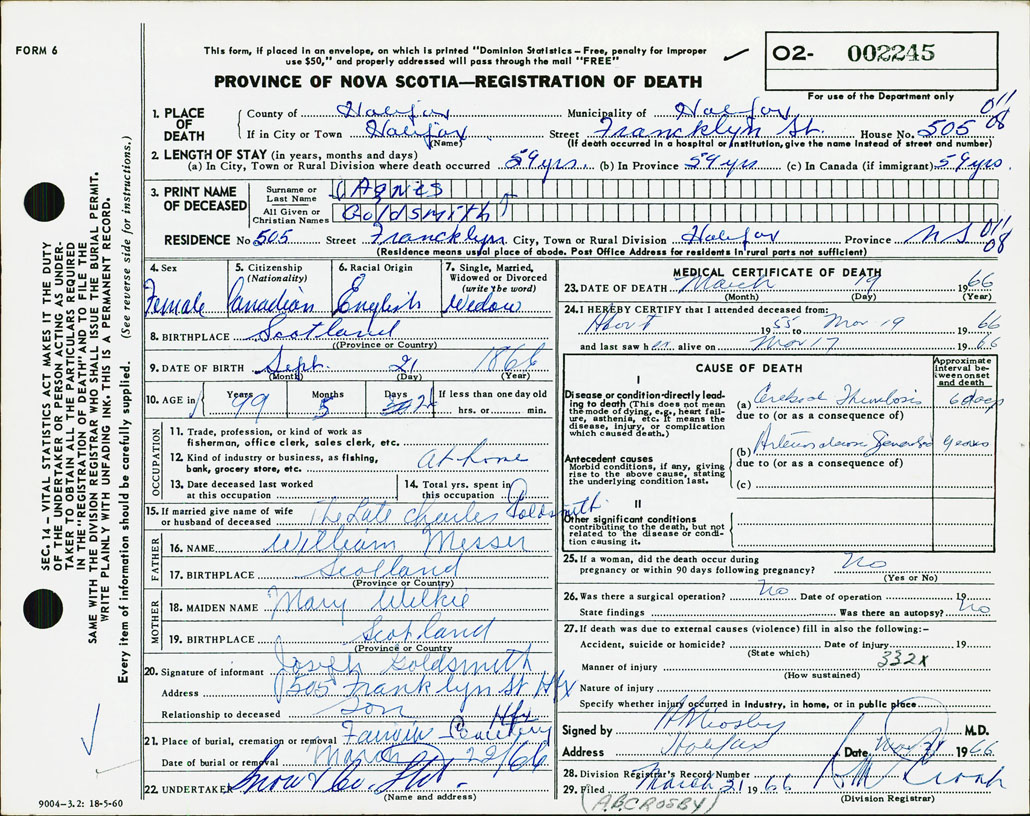 FORM 6
This form, if placed in an envelope, on which is printed "Dominion Statistics – Free, penalty for improper
use $50," and properly addressed will pass through the mail "FREE"
PROVINCE OF NOVA SCOTIA—REGISTRATION OF DEATH
02- 002245
For use of the Department only
SEC. 14 – VITAL STATISTICS ACT MAKES IT THE DUTY
OF THE UNDERTAKER OR PERSON ACTING AS UNDER-
TAKER TO OBTAIN ALL THE PARTICULARS REQUIRED
IN THE "REGISTRATION OF DEATH" AND TO FILE THE
SAME WITH THE DIVISION REGISTRAR WHO SHALL ISSUE THE BURIAL PERMIT.
WRITE PLAINLY WITH UNFADING INK. THIS IS A PERMANENT RECORD.
Every item of information should be carefully supplied. (See reverse side for instructions.)
1. PLACE OF DEATH
County of Halifax Municipality of Halifax 011
If in City or Town Halifax Street Francklyn St. House No. 505 08
(Name) (If death occurred in a hospital or institution, give the name instead of street and number)
2. LENGTH OF STAY (in years, months and days)
(a) In City, Town or Rural Division where death occurred 59 yrs. (b) In Province 59 yrs (c) In Canada (if immigrant) 59 yrs.
3. PRINT NAME OF DECEASED
Surname or Last Name Agnes
All Given or Christian Names Goldsmith
RESIDENCE No 505 Street Francklyn City, Town or Rural Division Halifax Province NS 011 08
(Residence means usual place of abode. Post Office Address for residents in rural parts not sufficient)
4. Sex Female
5. Citizenship (Nationality) Canadian
6. Racial Origin English
7. Single, Married, Widowed or Divorced (write the word) Widow
8. BIRTHPLACE Scotland
(Province or Country)
9. DATE OF BIRTH Sept. 21 1866
(Month) (Day) (Year)
10. AGE in Years 99 Months 5 Days If less than one day old hrs. or min.
OCCUPATION
11. Trade, profession, or kind of work as
fisherman, office clerk, sales clerk, etc.
12. Kind of industry or business, as fishing,
bank, grocery store, etc. At home
13. Date deceased last worked
at this occupation
14. Total yrs. spent in
this occupation
15. If married give name of wife
or husband of deceased The Late Charles Goldsmith
FATHER
16. NAME William Messer
17. BIRTHPLACE Scotland
(Province or Country)
MOTHER
18. MAIDEN NAME Mary Wilkie
19. BIRTHPLACE Scotland
(Province or Country)
20. Signature of informant Joseph Goldsmith
Address 505 Franklyn St Hfx
Relationship to deceased Son
21. Place of burial, cremation or removal Fairview Cemetery Hfx
Date of burial or removal March 22/66
22. UNDERTAKER Snow & Co. Ltd.
(Name and address)
9004–3.2: 18-5-60
MEDICAL CERTIFICATE OF DEATH
23. DATE OF DEATH March 19 1966
(Month) (Day) (Year)
24. I HEREBY CERTIFY that I attended deceased from:
About 1955 to Mar 19 1966
and last saw her alive on Mar 17 1966
CAUSE OF DEATH
Approximate interval between onset and death
I
Disease or condition directly lead-
ing to death (This does not mean
the mode of dying, e.g., heart fail-
ure, asthenia, etc. It means the
disease, injury, or complication
which caused death.)
(a) Cerebral Thrombosis 6 days
due to (or as a consequence of)
(b) Arteriosclerosis Generalized years
due to (or as a consequence of)
(c)
Antecedent causes
Morbid conditions, if any, giving
rise to the above cause, stating
the underlying condition last.
II
Other significant conditions
contributing to the death, but not
related to the disease or condi-
tion causing it.
25. If a woman, did the death occur during
pregnancy or within 90 days following pregnancy? No
(Yes or No)
26. Was there a surgical operation? No Date of operation 19
State findings Was there an autopsy? No
27. If death was due to external causes (violence) fill in also the following:–
Accident, suicide or homicide? Date of injury 19
(State which) 332X
Manner of injury
(How sustained)
Nature of injury
Specify whether injury occurred in industry, in home, or in public place
Signed by M.D.
Address Halifax Date Mar 21 1966
28. Division Registrar's Record Number
29. Filed March 21 1966
(Division Registrar)
(A.B. CROSBY)